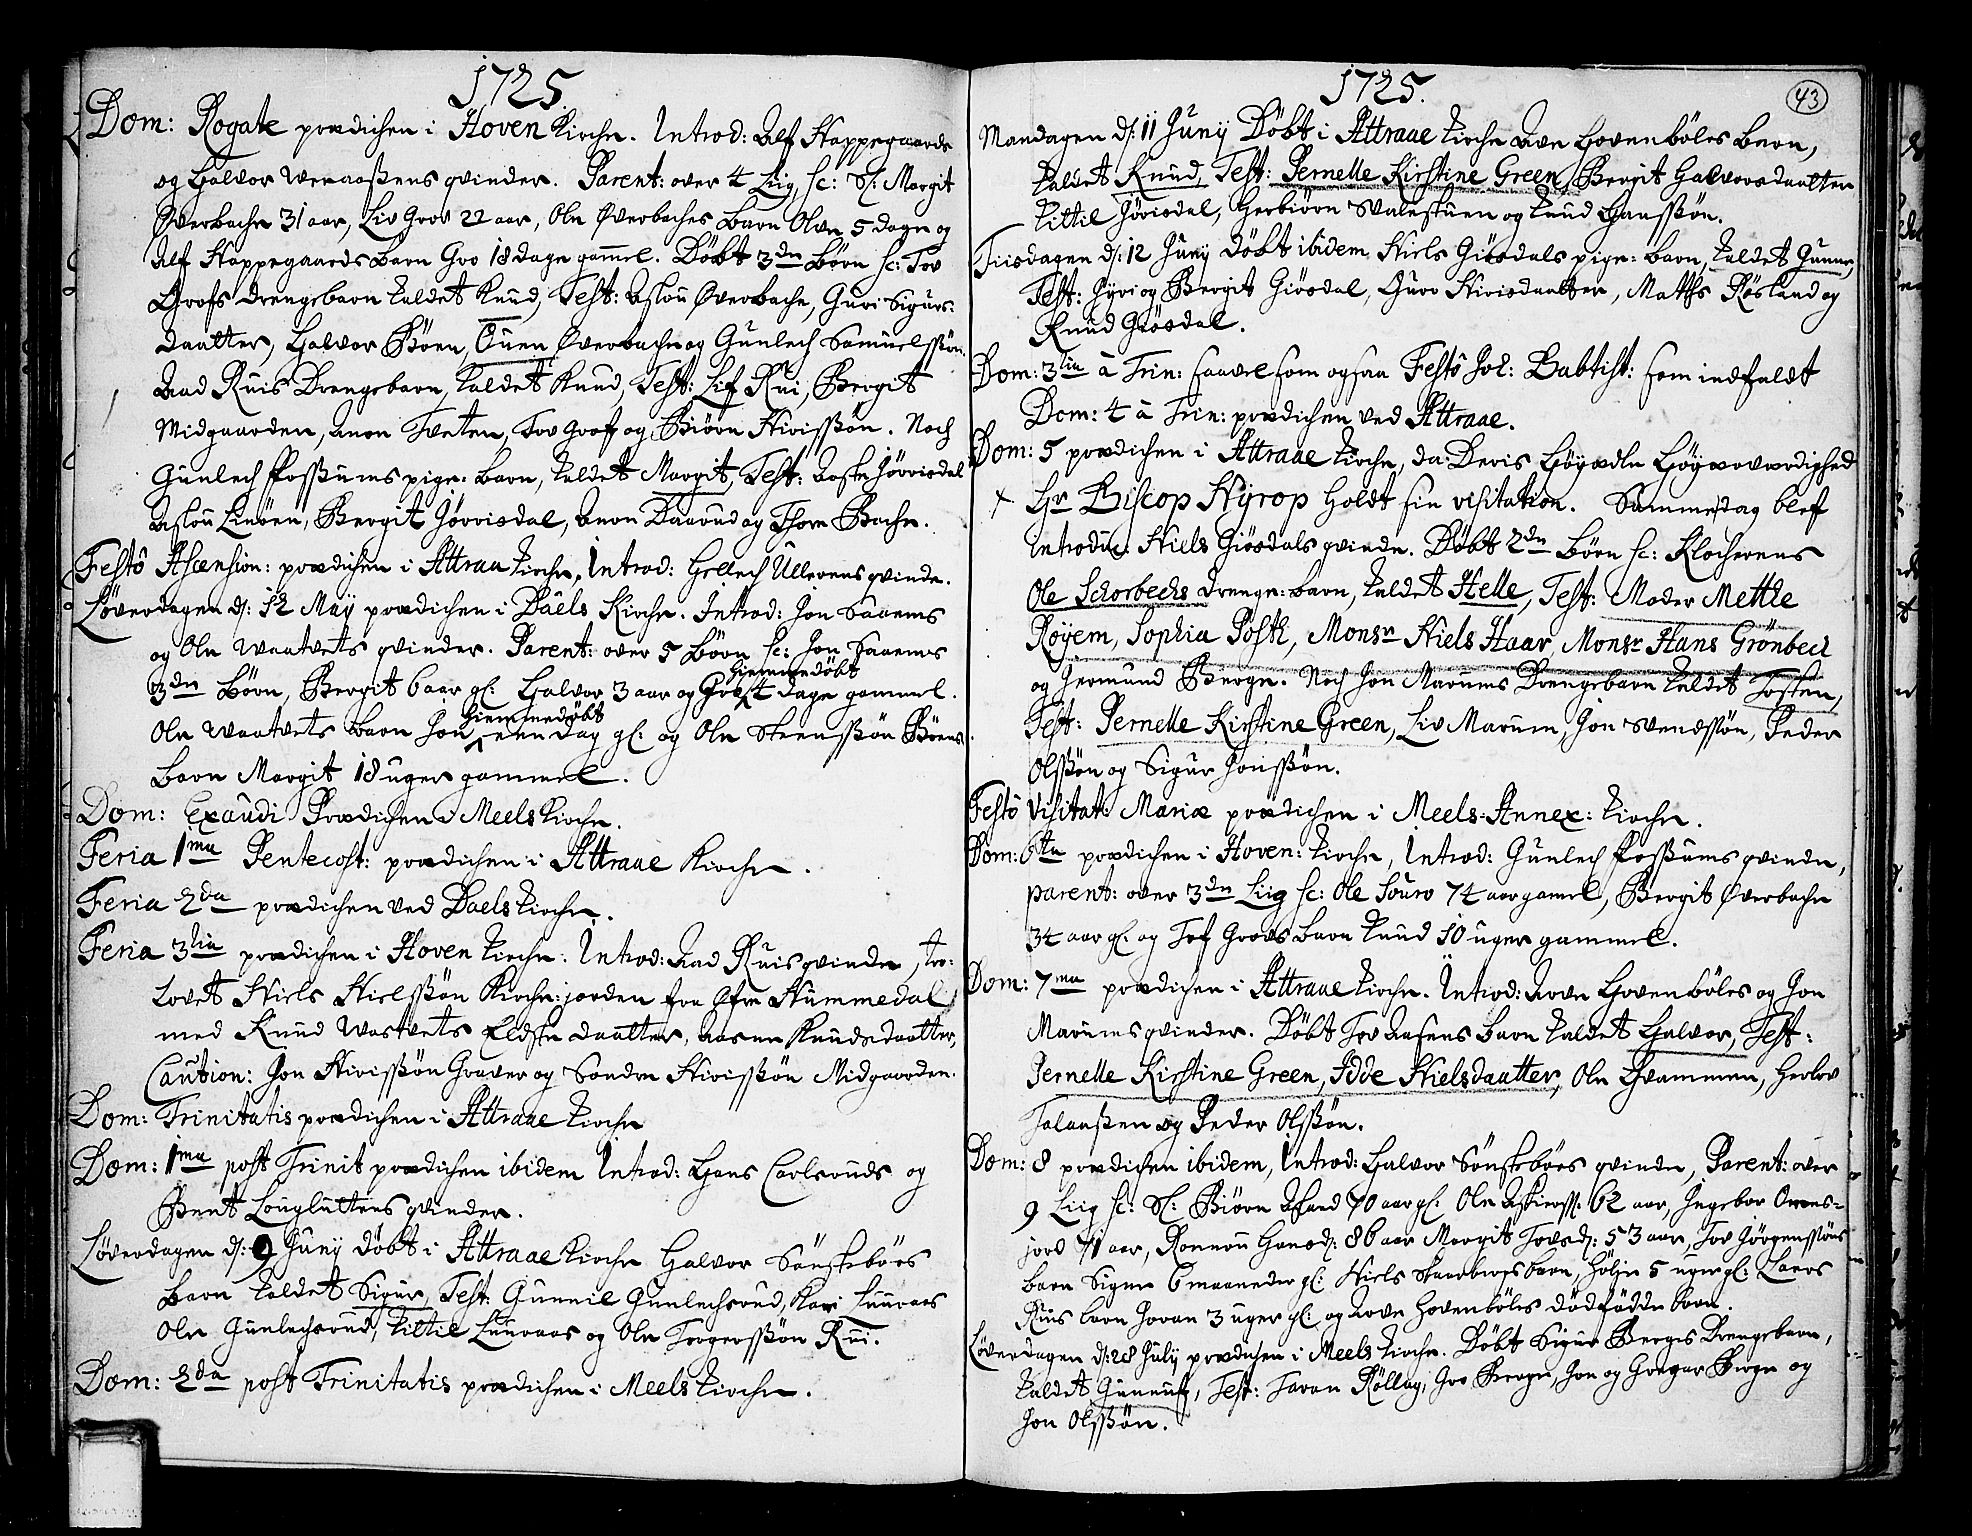 1725.
Dom: Rogate prædichen i Hoven Kirche. Introd: Alf Stappegaards
og Halvor Weraaßens qvinder. Parent: over 4 Liig, sc: Sl: Margit
Øverbache 31 aar, Liv Grov 22 aar, Ole Øverbaches barn Olve 5 dage og
Alf Stappegaards barn Gro 18 dage gam̄el. Døbt 3de Børn sc: Tov
Grofs drengebarn kaldet Knud, Test: Aslou Øverbache, Guri Sigurs-
daatter, Halvor Bøen, Ouen Øverbache og Gunlech Samuelssøn.
Aad Ruis Drengebarn, kaldet Knud, Test: Lif Rui, Bergit
Midgaarden, Aron Tveten, Tov Grof og Biørn Nirisßøn. Noch
Gunlech Poßhums pige-barn, kaldet Margit, Test: Aaste Jørrisdal
Aslou Linøen, Bergit Jørrisdal, Aron Daarud og Thore Bache.
Festô Ascension: prædichen i Attraa kirche, Introd: Gellech Ullerens qvinde.
Løverdagen d: 12 Maÿ prædichen i Daels Kirche. Introd: Jon Saaems
og Ole Waatvets qvinder. Parent: over 5 Børn sc: Jon Saaems
3de Børn, Bergit 6 aar gl: Halvor 3 aar og Gro hiemmedøbt 4 dage gammel.
Ole Waatvets barn Jon hiemmedøbt een dag gl: og Ole Steensßøn Bøens
barn Margit 18 uger gammel.
Dom: Exaudi Prædichen i Meels kirche.
Feria 1ma Pentecost: prædichen i Attraae Kirche.
Feria 2da prædichen ved Daels kirche.
Feria 3tia prædichen i Hoven kirche. Introd: Aad Ruis qvinde, tro-
lovet Niels Nielsßøn Kirche-jorden fra Øfre Nummedal
med Knud Wastvets Eldste daatter, Aasne Knudsdaatter,
Caution: Jon Nirisßøn Graver og Sondre Nirisßøn Midgaarden.
Dom: Trinitatis prædichen i Attraae kirche
Dom: 1ma post Trinit prædichen ibidem Introd: Hans Carlsruds og
Bent Lougluttens qvinder.
Løverdagen d: 9 Junÿ døbt i Attraae kirche Halvor Sønstebøes
barn kaldet Sigur, Test: Gunnil Gunlechsrud, Kari Luuraas
Ole Gunlechsrud, Kittil Luuraas og Ole Torgersßøn Rui.
Dom: 2da post Trinitatis prædichen i Meels kirche.
1725.
43
Mandagen d: 11 Junÿ Døbt i Attraae kirche Ave Hovenbøles barn,
kaldet Knud, Test: Pernelle Kirstine Green, Bergit Halvorsdaatter
Kittil Jørisdal, Herbiørn Walestuen og Knud Hansßøn.
Tiisdagen d: 12 Junÿ døbt ibidem Niels Giøsdals pige-barn, kaldet Gunne,
Test: Gyri og Bergit Giøsdal, Guro Nirisdaatter, Matths Røsland og
Knud Giøsdal.
Dom: 3tia à Trin: saavel som ogsaa Festô Joh: Babtist: som indfaldt
Dom: 4 à Trin: prædichen ved Attraae.
Dom: 5 prædichen i Attraae kirche, da Deris Høÿædle Høÿærværdighed
+ Hr Biscop Nÿrop holdt sin visitation. Samme dag blef
Introduc: Niels Giøsdals qvinde. Døbt 2de Børn sc: Klocherens
Ole Schorbechs drenge-barn, kaldet Helle, Test: Mader Mettke
Røyem, Sophia Posth, Monsr Niels Haar, Monsr Hans Grønbech
og Germund Berge. Noch Jon Marums Drengebarn kaldet Tosten,
Test: Pernelle Kirstine Green, Liv Marum, Jon Svendssøn, Peder
Olsßøn og Sigur Jonsßøn.
Festô Visitat: Mariæ prædichen i Meels-Annex: kirche.
Dom: 6ta prædichen i Hoven: kirche, Introd: Gunlech Poßhums qvinde,
parent: over 3de Liig sc: Ole Souro 74 aar gamel, Bergit Øverbache
34 aar gl: og Tof Grovs barn Knud 10 uger gammel.
Dom: 7ma prædichen i Attraae kirche. Introd: Aave Hovenbøles og Jon
Marums qvinder. Døbt Tov Aasens barn kaldet Halvor, Test:
Pernelle Kirstine Green, Idde Nielsdaatter, Ole Qvammen, Herlov
Talaaßen og Peder Olsßøn.
Dom: 8 prædichen ibidem, Introd: Halvor Sønstebøes qvinde, Parent: over
9 Liig sc: Sl: Biørn Aasand 70 aar gl: Ole Askierss: 62 aar, Ingebor Omons-
jord 71 aar, Ronnou Hansd: 86 aar Margit Tovsd: 53 aar, Tov Jørgensßøns
barn Signe 6 maaneder gl: Niels Skaarbergs barn, Høljer 5 uger gl: Laers
Ruis barn Joran 3 uger gl: og Aave Hovenbøles dødfødde barn.
Løverdagen d: 28 Julÿ prædichen i Meels kirche. Døbt Sigur Berges Drengebarn,
kaldet Gunnulf, Test: Taran Røllag, Gro Berge, Jon og Gregar Berge og
Jon Olsßøn.